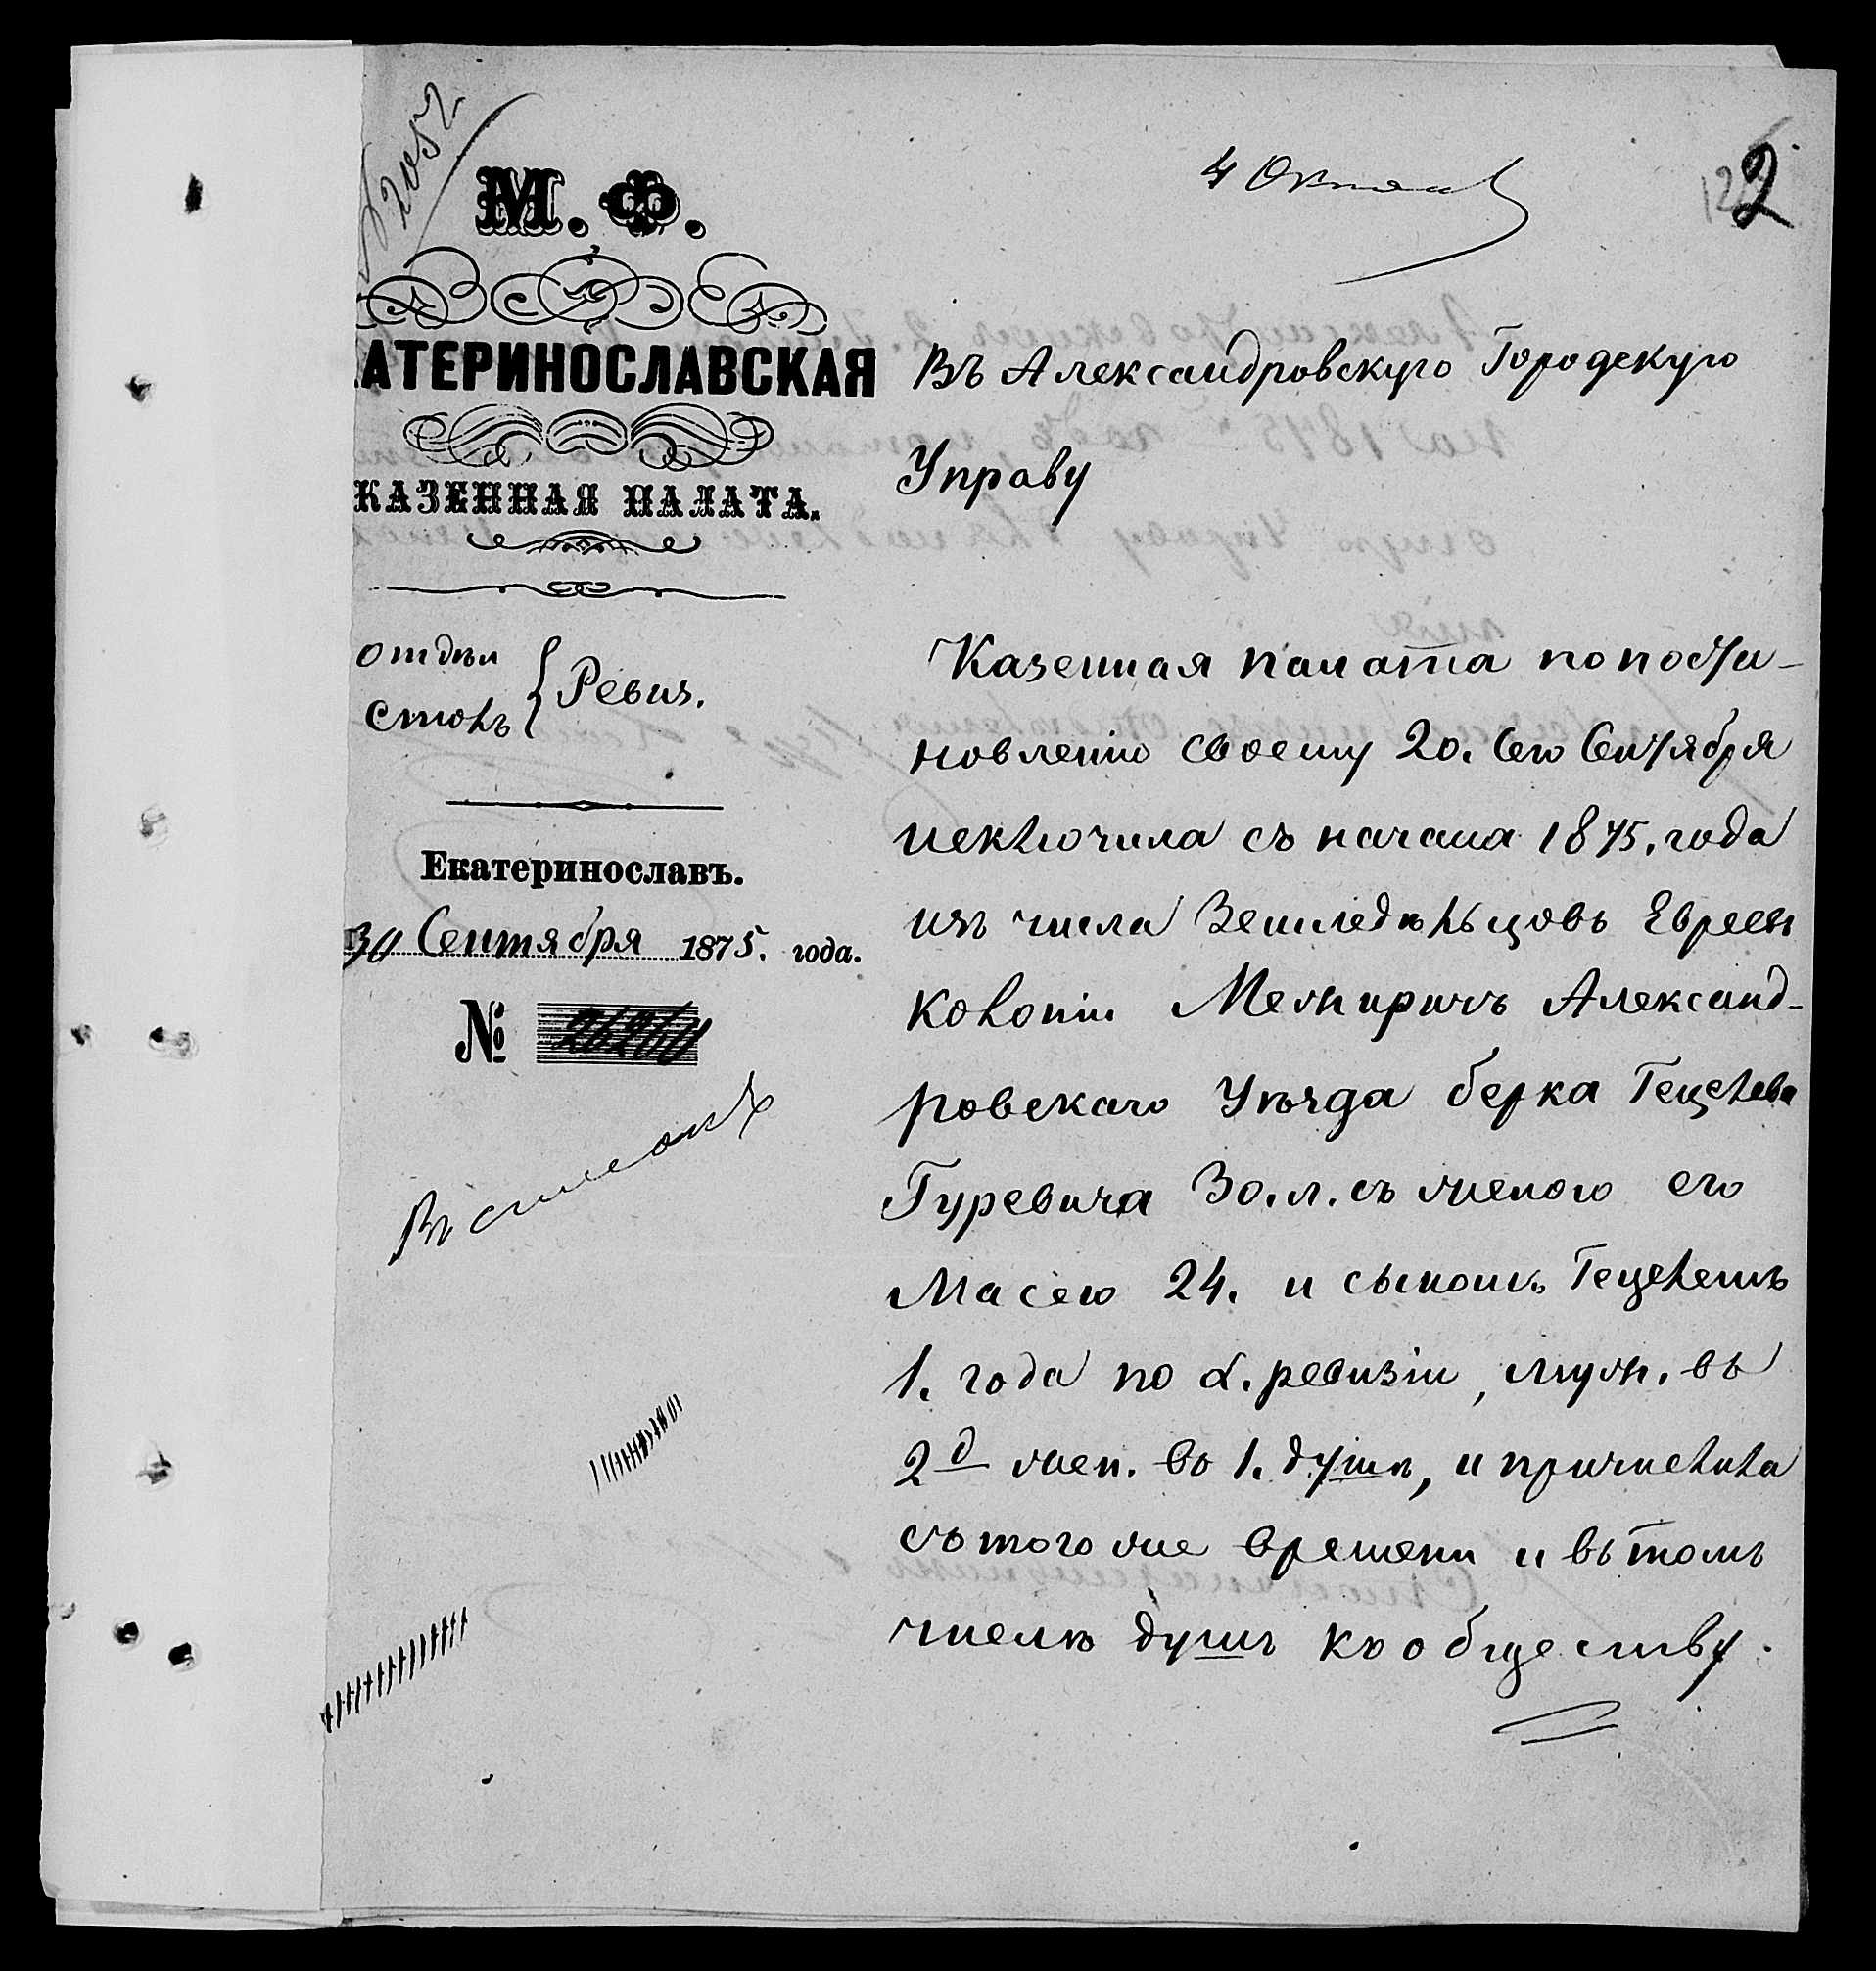 2052
4 Октяб
2
М. Ф.
АТЕРИНОСЛАВСКАЯ
КАЗЕННАЯ ПАЛАТА.
Отдѣл
Столъ
Ревиз.
Екатеринославъ.
30 Сентября 1875. года.
№
Въ Александровскую Городскую
Управу
Казенная палата по поста-
новленію своему 20. сего Сентября
исключила съ начала 1875. года
изъ числа Земледѣльцовъ Евреевъ
колоніи Межиричъ Александ-
ровскаго Уѣзда Берка Гецелева
Гуревича 30. л. съ женою его
Масею 24. и сыномъ Гецелемъ
1. года по X. ревизіи, муж. въ
2 д жен. въ 1. душѣ, и причислила
съ того же времени и въ томъ
числѣ душъ къ обществу.